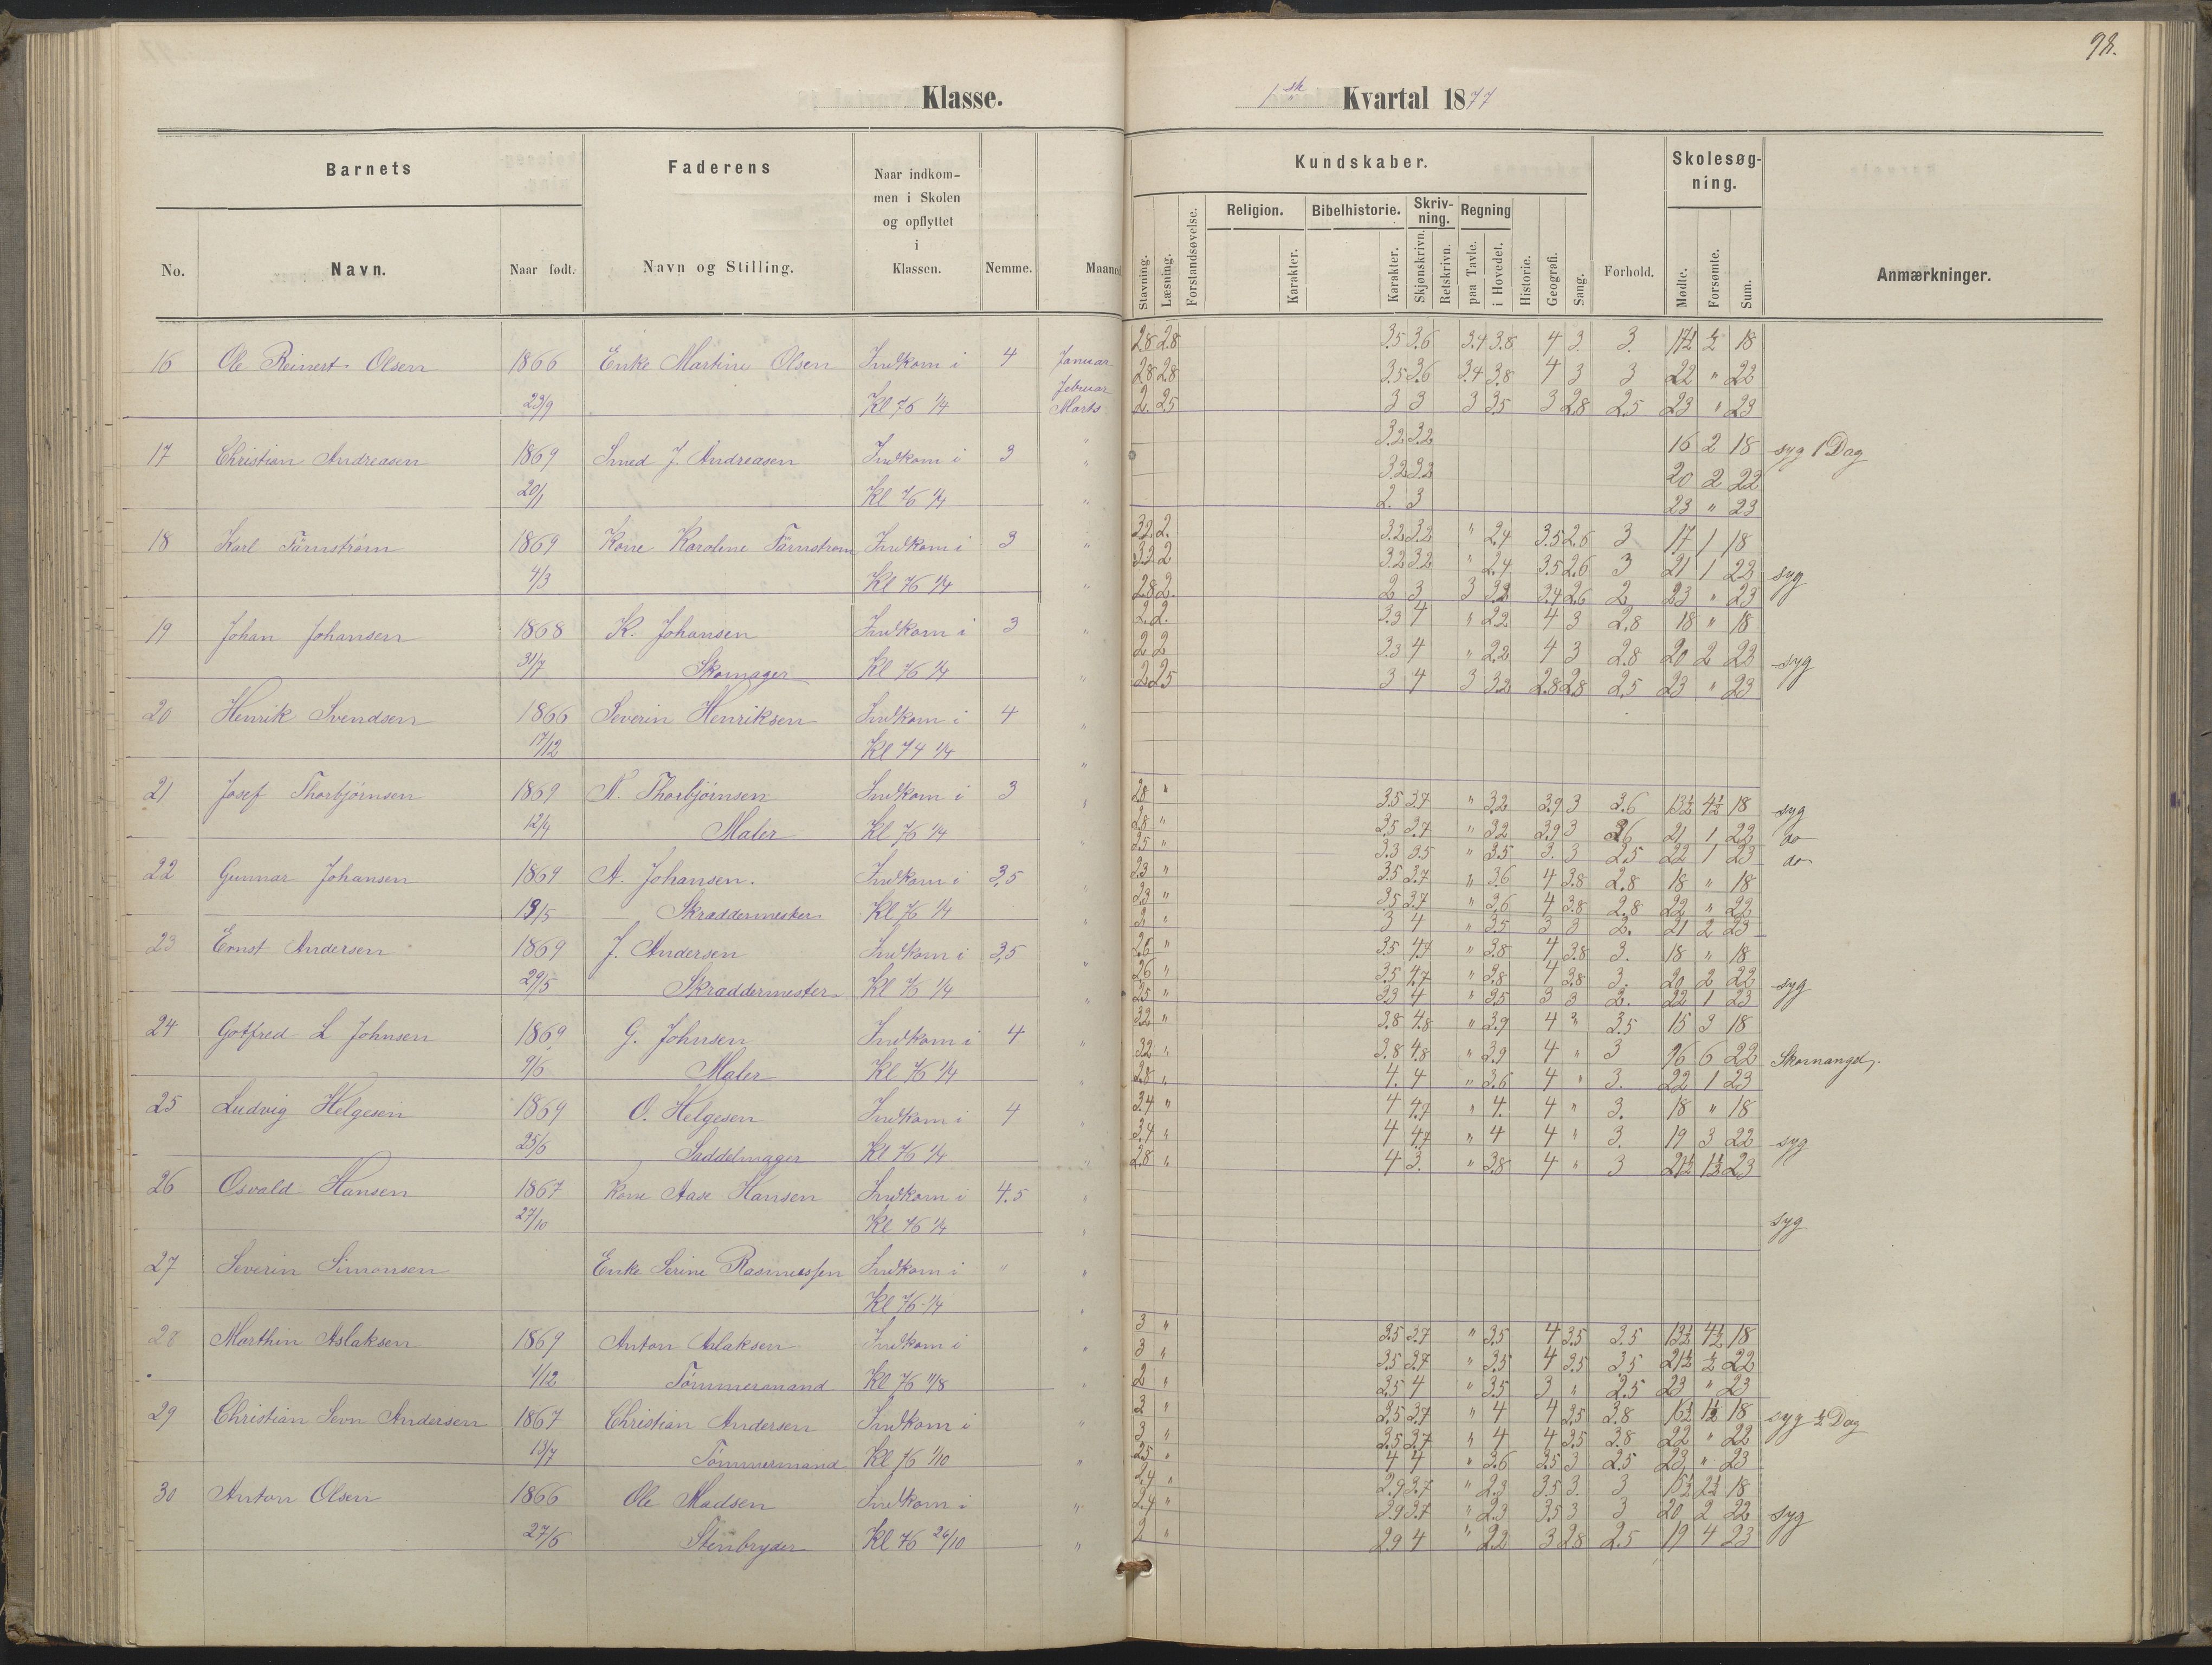 98.
Klasse.
1ste Kvartal 1877
Barnets
Faderens
Naar indkom-
men i Skolen
og opflyttet
i
Klassen.
No.
Navn.
Naar født.
Navn og Stilling.
Nemme.
Maaned
Kundskaber.
Stavning.
Læsning.
Forstandsøvelse.
Religion.
Karakter.
Bibelhistorie.
Karakter.
Skriv-
ning.
Skjønskrivn.
Retskrivn.
Regning
paa Tavle.
i Hovedet.
Historie.
Geografi.
Sang.
Forhold.
Skolesøg-
ning.
Mødte.
Forsømte.
Sum.
Anmærkninger.
16 Ole Reinert Olsen 1866 Enke Martine Olsen Indkom i 4 Januar 2.8 2.8 3.5 3.6 3.4 3.8 4 3 3. 17½ ½ 18
Februar 2.8 2.8 3.5 3.6 3.4 3.8 4 3 3 22 " 22
23/9 Kl 76 1/4 Marts 2. 2.5 3 3 3 3.5 3 2.8 2.5 23 " 23
17 Christian Andreasen 1869 Smed J. Andreasen Indkom i 3 " 3.2 3.2 16 2 18 syg 1 Dag
" 3.2 3.2 20 2 22
20/1 Kl 76 1/4 " 2. 3 23 " 23
18 Karl Färnström 1869 Kone Karoline Färnstrom Indkom i 3 " 3.2 2. 3.2 3.2 " 2.4 3.5 2.6 3 17 1 18
3.2 2 3.2 3.2 " 2.4 3.5 2.6 3 21 1 22 syg
4/3 Kl 76 1/4 " 2.8 2. 2 3 3 3.2 3.4 2.6 2 23 " 23
19 Johan Johansen 1868 K. Johansen Indkom i 3 " 2. 2. 3.3 4 " 2.2 4 3 2.8 18 " 18
2 2 3.3 4 " 2.2 4 3 2.8 20 2 22 syg
31/7 Skomager Kl 76 1/4 " 2 2.5 3 4 3 3.2 2.8 2.8 2.5 23 " 23
20 Henrik Svendsen 1866 Severin Henriksen Indkom i 4 "
17/12 Kl 74 1/4 "
21 Josef Thorbjörnsen 1869 N. Thorbjörnsen Indkom i 3 " 2.8 " 3.5 3.7 " 3.2 3.9 3 3.6 13½ 4½ 18 syg
2.8 " 3.5 3.7 " 3.2 3.9 3 3.6 21 1 22 do
12/4 Maler Kl 76 1/4 2.5 " 3.3 3.5 " 3.5 3. 3 2.5 22 1 23 do
22 Gunnar Johansen 1869 A. Johansen. Indkom i 3,5 " 2.3 " 3.5 3.7 " 3.6 4 3.8 2.8 18 " 18
2.3 " 3.5 3.7 " 3.6 4 3.8 2.8 22 " 22
19/5 Skraddermester Kl 76 1/4 " 2 " 3 4 " 3.5 3 3 2. 21 2 23
23 Ernst Andersen 1869 J. Andersen Indkom i 3,5 " 2.6 " 3.5 4.7 " 3.8 4 3.8 3. 18 " 18
2.6 " 3.5 4.7 " 3.8 4 3.8 3. 20 2 22 syg
29/5 Skraddermester Kl 76 1/4 " 2.5 " 3.3 4 " 3.5 3 3 2. 22 1 23
24 Gotfred L Johnsen 1869 G. Johnsen Indkom i 4 " 3.2 " 3.8 4.8 " 3.9 4 " 3.5 15 3 18
3.2 " 3.8 4.8 " 3.9 4 " 3 16 6 22 Skomangel.
9/6 Maler Kl 76 1/4 " 2.8 " 4. 4 " 3.6 4 " 3. 22 1 23
25 Ludvig Helgesen 1869 O. Helgesen Indkom i 4 " 3.4 " 4 4.7 " 4. 4 " 3. 18 " 18
3.4 " 4 4.7 " 4 4 " 3. 19 3 22 syg
25/6 Saddelmager Kl 76 1/4 " 2.8 " 4 3. " 3.8 4 " 3 21½ 1½ 23
26 Osvald Hansen 1867 Kone Aase Hansen Indkom i 4.5 "
27/10 Kl 76 1/4 " syg
27 Severin Simonsen Enke Serine Rasmussen Indkom i " "
Kl 76 1/4 "
28 Marthin Aslaksen 1869 Anton Aslaksen Indkom i " 3 " 3.5 3.7 " 3.5 4 3.5 3.5 13½ 4½ 18
3 " 3.5 3.7 " 3.5 4 3.5 3.5 21½ ½ 22
4/12 Tömmermand Kl 76 11/8 " 2 " 3.5 4 " 3.5 3 " 2.5 23 " 23
29 Christian Sevn Andersen 1867 Christian Andersen Indkom i " 3 " 3.5 3.7 " 4 4 3.5 3.8 16½ 1½ 18 syg ½ Dag
3 " 3.5 3.7 " 4 4 3.5 3.8 22 " 22
13/7 Tömmermand Kl 76 1/10 " 2.5 " 4 4 " 3.6 3.5 3 2.5 23 " 23
30 Anton Olsen 1866 Ole Madsen Indkom i " 2.4 " 2.9 3.7 " 2.3 3.5 3. 3 15½ 2½ 18
2.4 " 3.9 3.7 " 2.3 3.5 3 3 20 2 22 syg
27/6 Stenbryder Kl 76 26/10 " 2 " 2.9 4 " 2.2 3 2.8 2.5 19 4 23